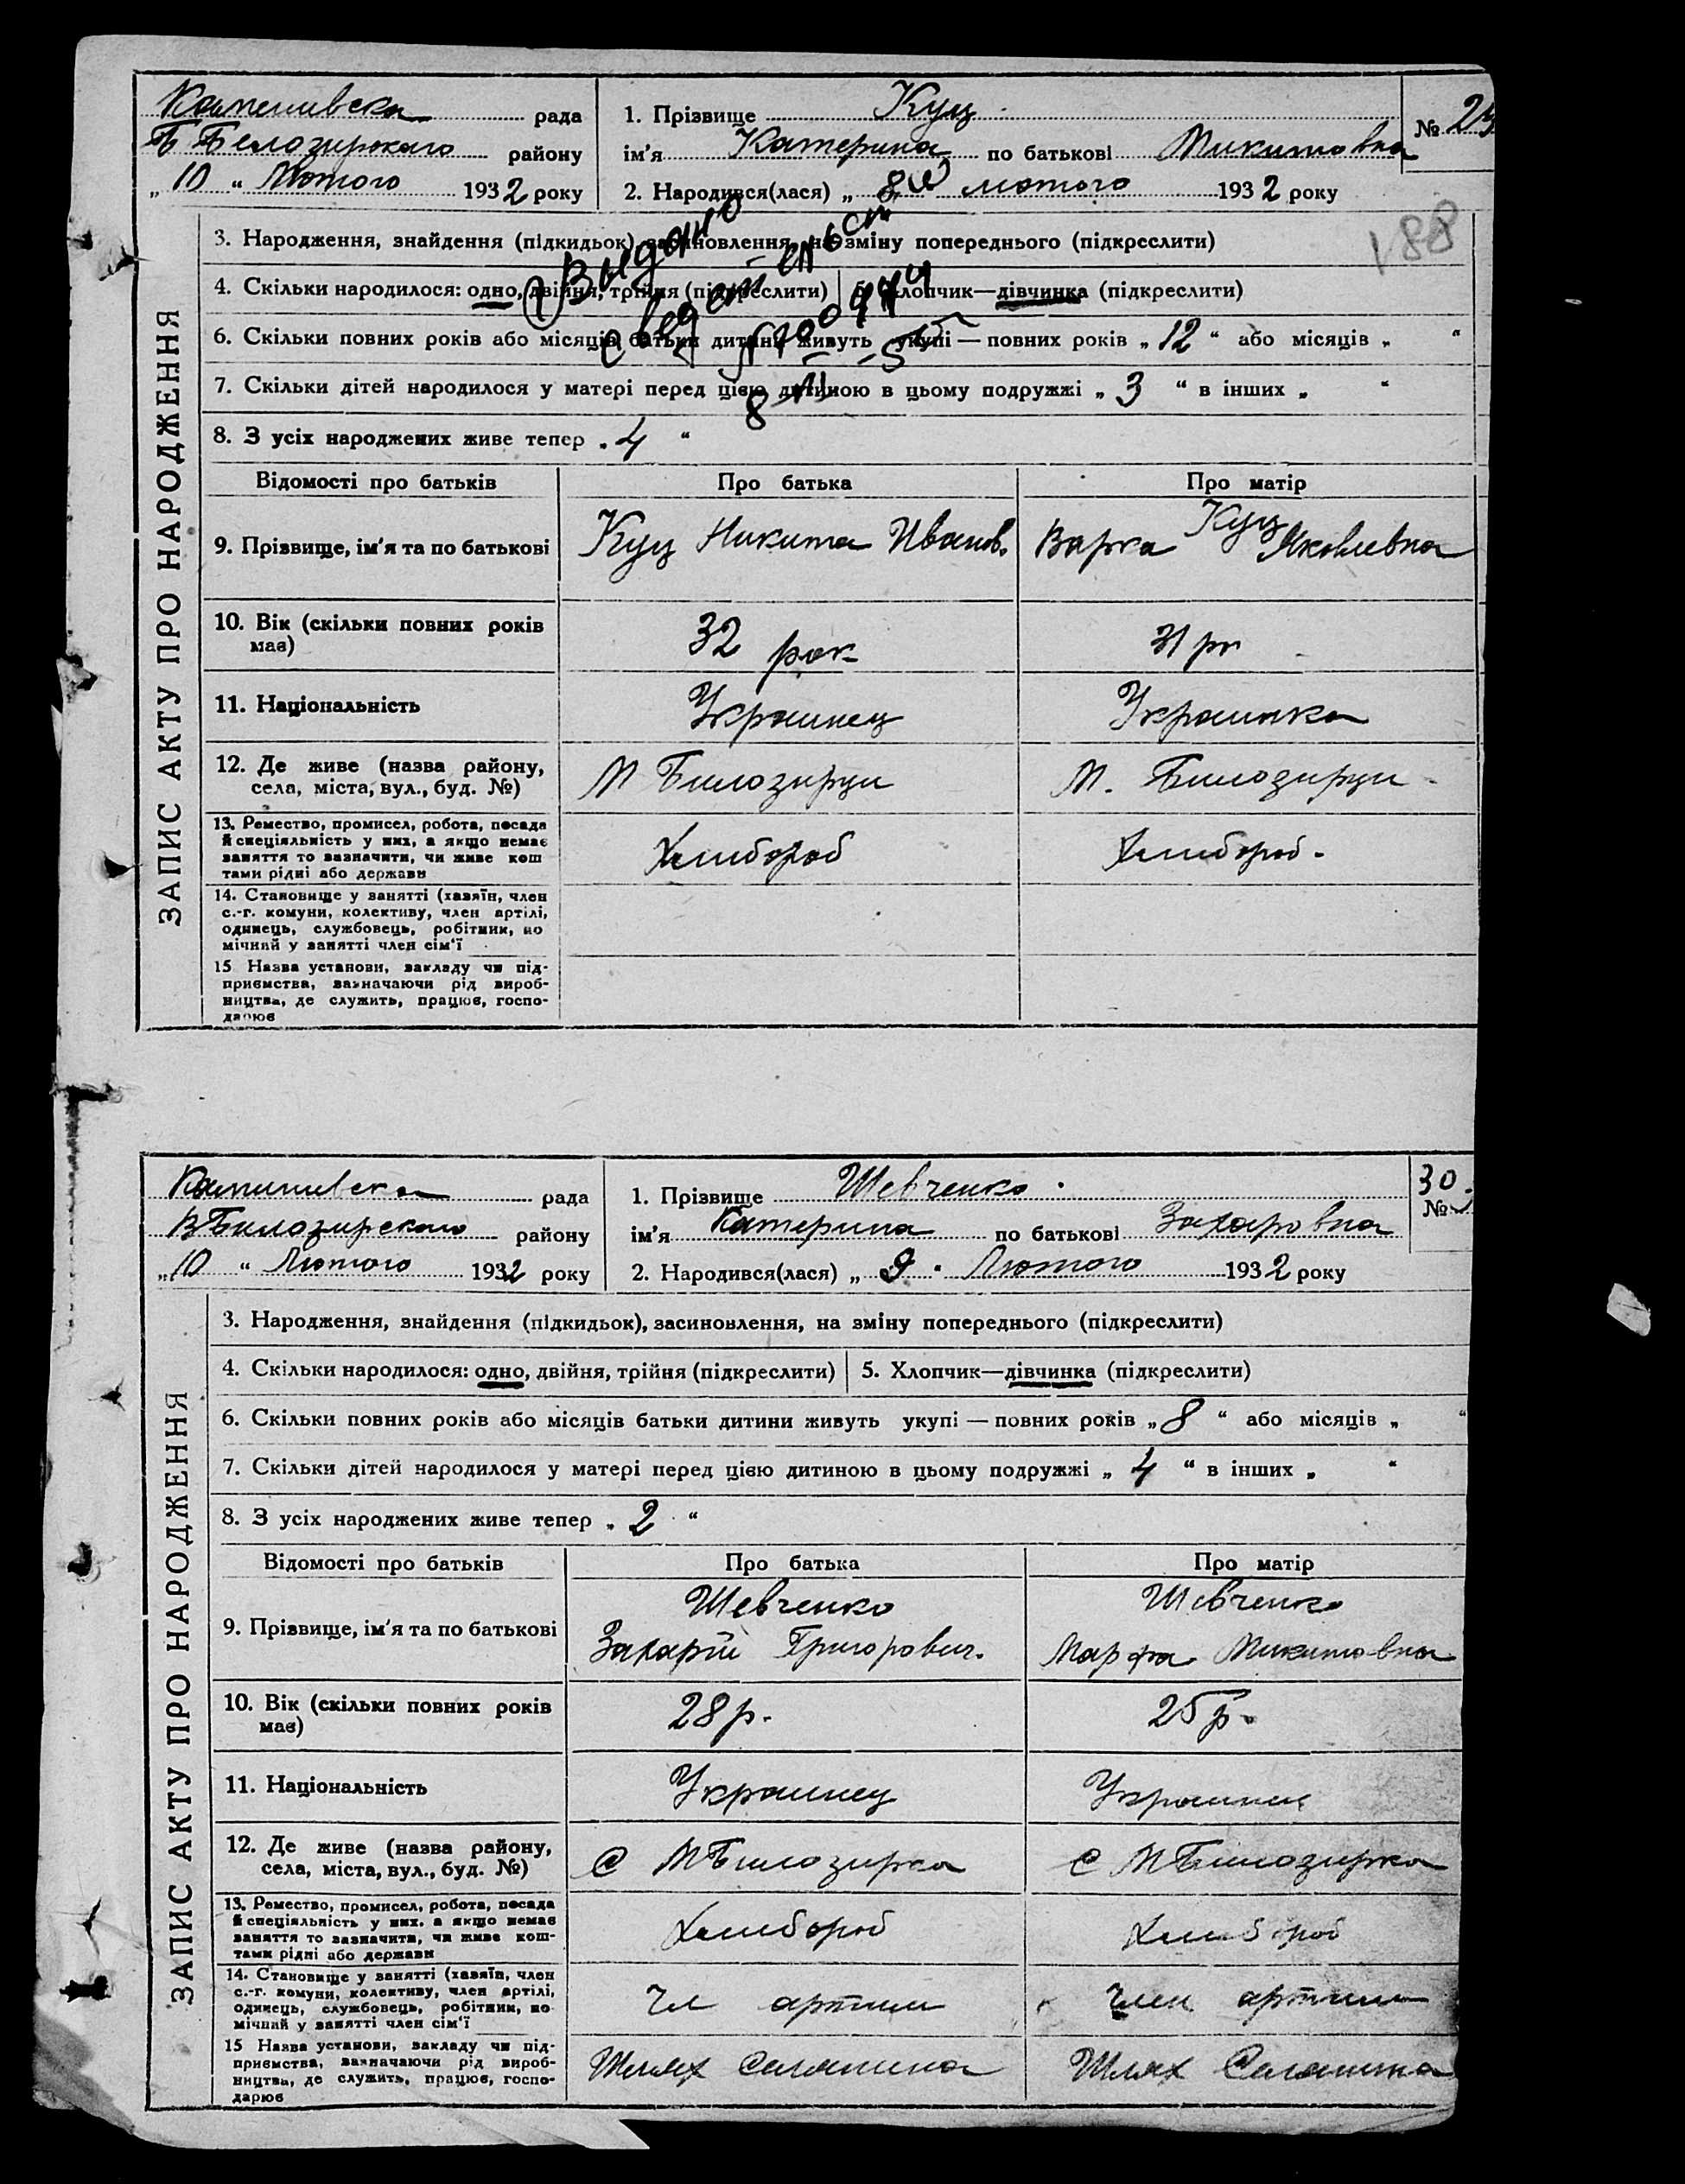 рада
Белозирского району
„ 10 “ Лютого 1932 року
1. Прізвище Куц
ім'я Катерина по батькові Микитовна
№
2. Народився(лася) „ 8 “ лютого 1932 року
188
3. Народження, знайдення (підкидьок), засиновлення, на зміну попереднього (підкреслити)
4. Скільки народилося: одно, двійня, трійня (підкреслити) 5. Хлопчик—дівчинка (підкреслити)
6. Скільки повних років або місяців батьки дитини живуть укупі — повних років „ 12 “ або місяців „ “
7. Скільки дітей народилося у матері перед цією дитиною в цьому подружжі „ 3 “ в інших „ “
8. З усіх народжених живе тепер „ 4 “
ЗАПИС АКТУ ПРО НАРОДЖЕННЯ
Відомості про батьків Про батька Про матір
9. Прізвище, ім'я та по батькові Куц Никита Иванов. Куц Варка Яковлевна
10. Вік (скільки повних років має) 32 рок 31 рк
11. Національність Украинец Украинка
12. Де живе (назва району, села, міста, вул., буд. №) М Билозирци М. Билозирци
13. Ремество, промисел, робота, посада й спеціяльність у них, а якщо немає заняття то зазначити, чи живе коштами рідні або держави Хлибороб Хлибороб.
14. Становище у занятті (хазяїн, член с.-г. комуни, колективу, член артілі, одинець, службовець, робітник, помічний у занятті член сім'ї
15 Назва установи, закладу чи підприємства, зазначаючи рід виробництва, де служить, працює, господарює
рада
Билозирского району
„ 10 “ Лютого 1932 року
1. Прізвище Шевченко
ім'я Катерина по батькові Захаровна
30
№
2. Народився(лася) „ 9 “ Лютого 1932 року
3. Народження, знайдення (підкидьок), засиновлення, на зміну попереднього (підкреслити)
4. Скільки народилося: одно, двійня, трійня (підкреслити) 5. Хлопчик—дівчинка (підкреслити)
6. Скільки повних років або місяців батьки дитини живуть укупі — повних років „ 8 “ або місяців „ “
7. Скільки дітей народилося у матері перед цією дитиною в цьому подружжі „ 4 “ в інших „ “
8. З усіх народжених живе тепер „ 2 “
ЗАПИС АКТУ ПРО НАРОДЖЕННЯ
Відомості про батьків Про батька Про матір
9. Прізвище, ім'я та по батькові Шевченко Захарій Григорович. Шевченко Марфа Микитовна
10. Вік (скільки повних років має) 28 р. 25 р.
11. Національність Украинец Украинец
12. Де живе (назва району, села, міста, вул., буд. №) с МБилозирка с МБилозирка
13. Ремество, промисел, робота, посада й спеціяльність у них, а якщо немає заняття то зазначити, чи живе коштами рідні або держави Хлибороб Хлибороб
14. Становище у занятті (хазяїн, член с.-г. комуни, колективу, член артілі, одинець, службовець, робітник, помічний у занятті член сім'ї Чл артили член артили
15 Назва установи, закладу чи підприємства, зазначаючи рід виробництва, де служить, працює, господарює Шлях Селянина Шлях Селянина